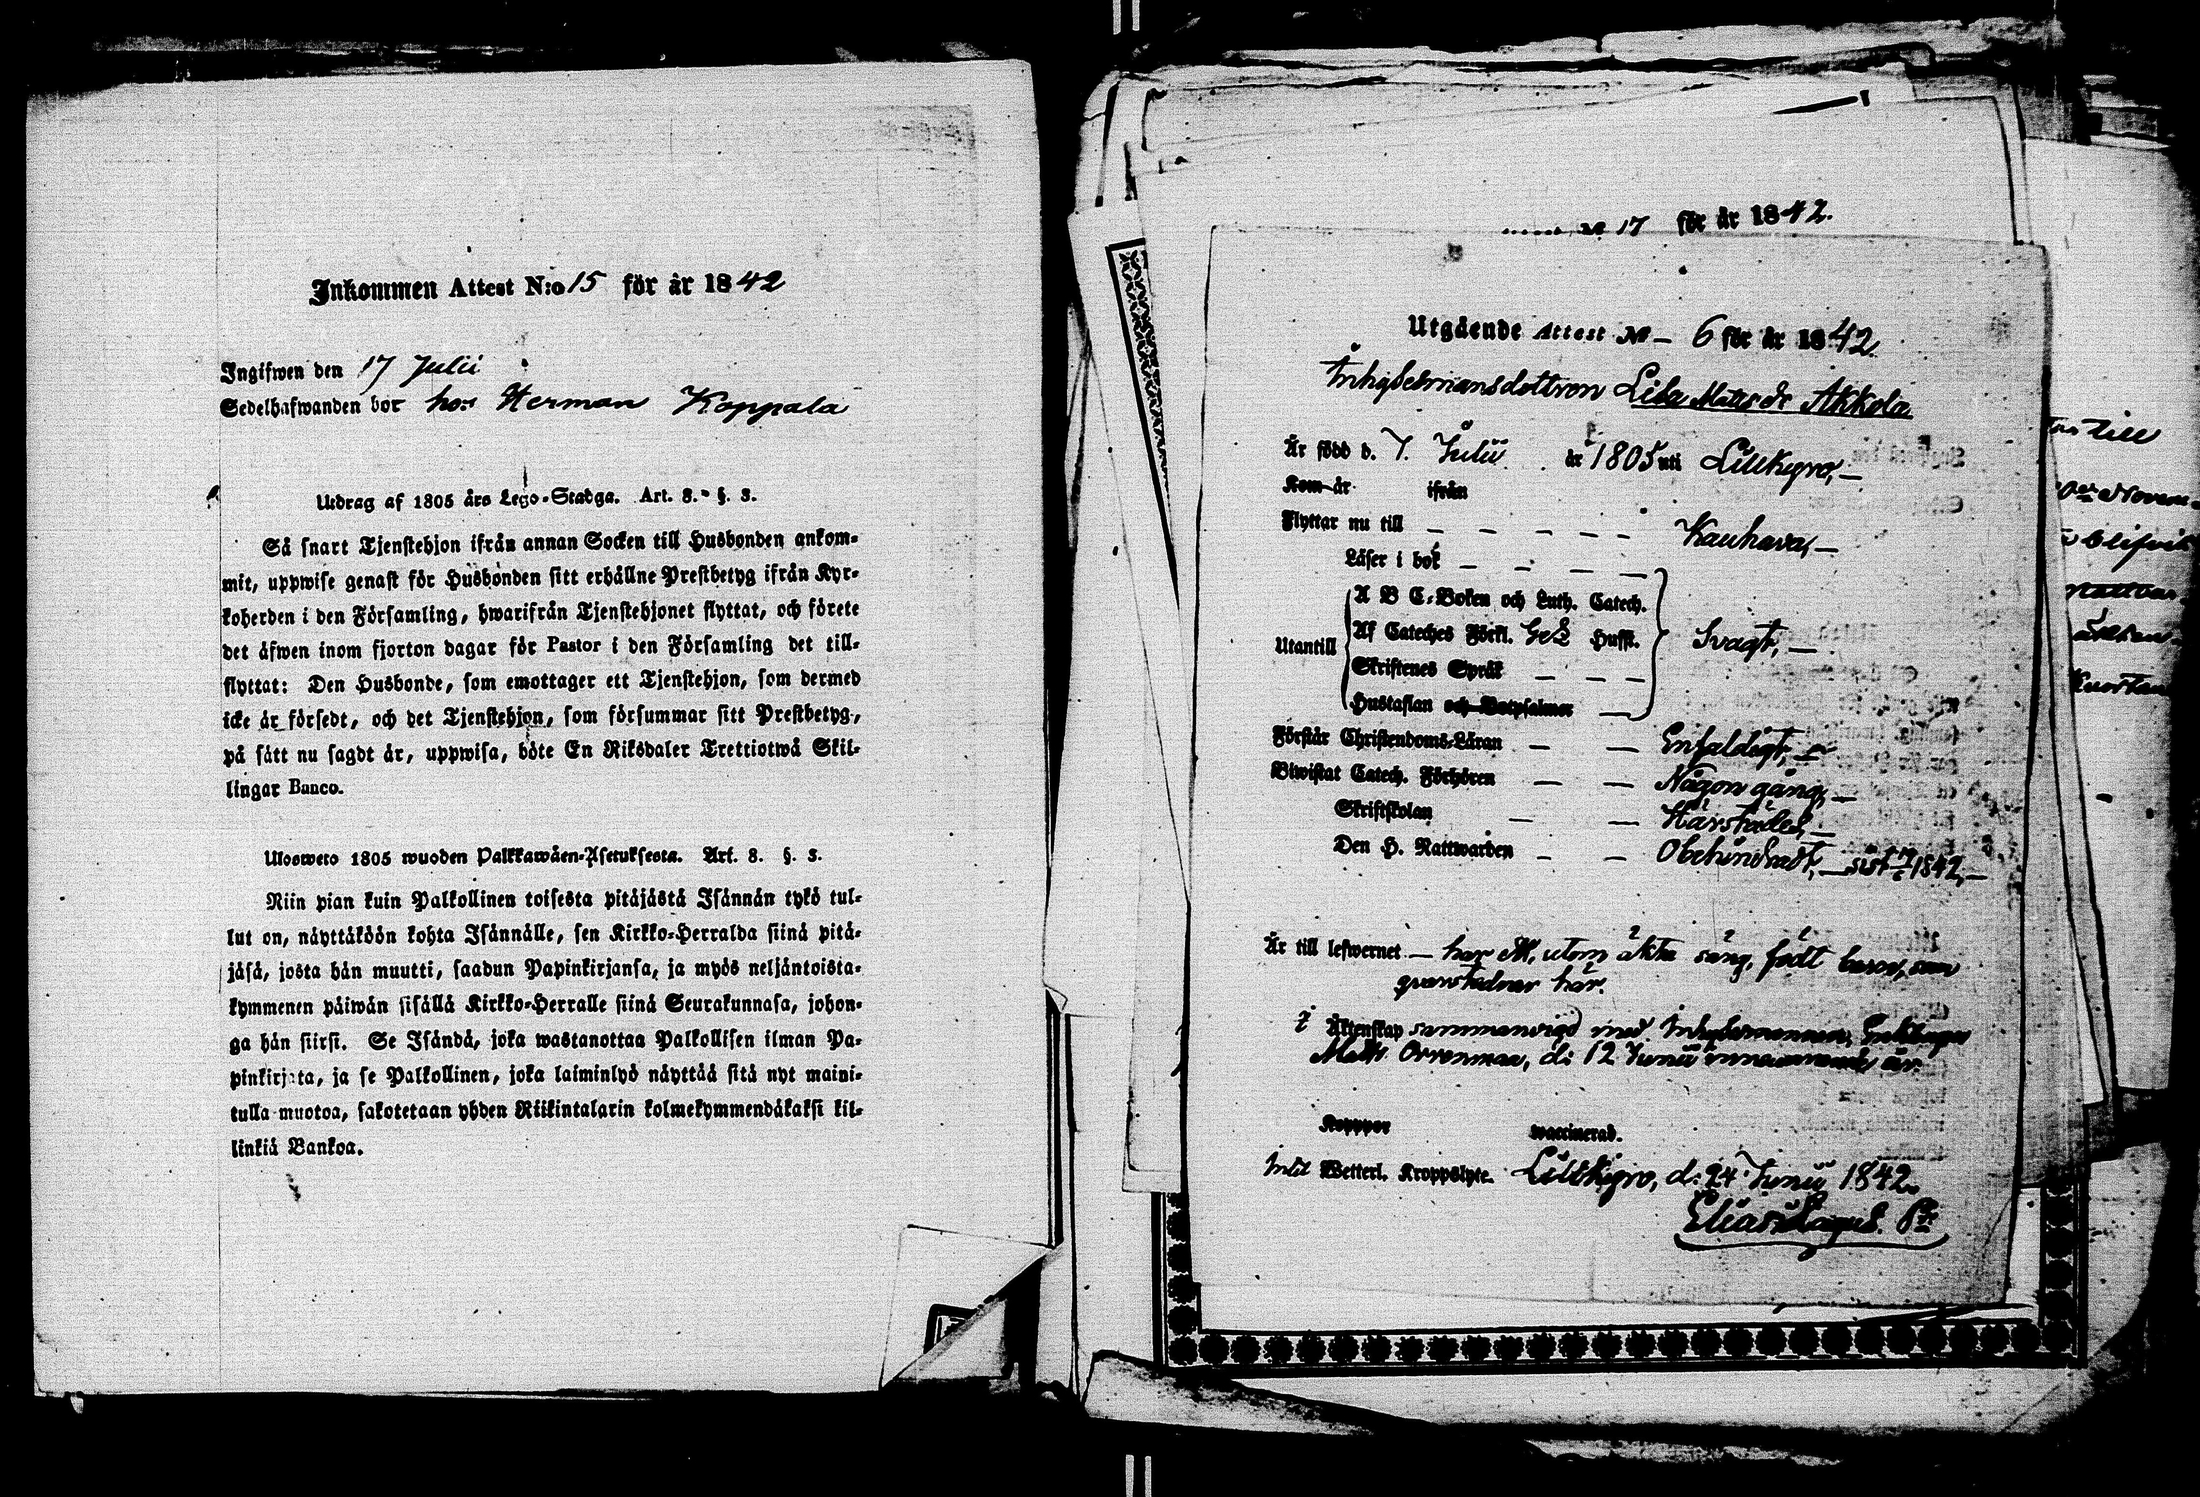 Inkommen Attest N:o 15 för år 1842
Ingifwen den 17 Julii
Sedelhafwanden bor hos Herman Koppala
Utdrag af 1805 års Lego-Stadga. Art. 8. §. 3.
Så snart Tjenstehjon ifrån annan Socken till Husbonden ankom-
mit, uppwise genast för Husbonden sitt erhållne Prestbetyg ifrån Kyr-
koherden i den Församling, hwarifrån Tjenstehjonet flyttat, och förete
det äfwen inom fjorton dagar för Pastor i den Församling det till-
flyttat: Den Husbonde, som emottager ett Tjenstehjon, som dermed
icke är försedt, och det Tjenstehjon, som försummar sitt Prestbetyg,
på sätt nu sagdt är, uppwisa, böte En Riksdaler Trettiotwå Skil-
lingar Banco.
Ulosweto 1805 wuoden Palkkawäen-Asetuksesta. Art. 8. §. 3.
Niin pian kuin Palkollinen toisesta pitäjästä Isännän tykö tul-
lut on, näyttäköön kohta Isännälle, sen Kirkko-Herralda siinä pitä-
jäsä, josta hän muutti, saadun Papinkirjansa, ja myös neljäntoista-
kymmenen päiwän sisällä Kirkko-Herralle siinä Seurakunnasa, johon-
ga hän siirsi. Se Isändä, joka wastanottaa Palkollisen ilman Pa-
pinkirjata, ja se Palkollinen, joka laiminlyö näyttää sitä nyt maini-
tulla muotoa, sakotetaan yhden Riikintalarin kolmekymmendäkaksi kil-
linkiä Bankoa.
№ 17 för år 1842.
Utgående Attest № 6 för år 1842
Inhysesmansdottron Lisa Matsdr Akkola
Är född d. 7. Julii år 1805 uti Lillkyro,
Kom år ifrån
Flyttar nu till Kauhava,
Läser i bok
A B C-Boken och Luth. Catech.
Utantill Af Cateches Förkl. Husfl. Svagt,
Skriftenes Språk
Hustaflan och Botpsalmer
Förstår Christendoms-Läran Enfaldigt,
Biwistat Catech. Förhören Någon gång,
Skriftskolan Härstädes,
Den H. Nattwarden Obehindradt, sist 1842,
Är till lefwernet har utom äkta säng, födt barn, som
qvarstadnar här.
i Äktenskap sammanvigd med Inhysesmannen, Enklingen
Matts Orrenmaa, d: 12 Junii innevarande år.
Koppor waccinerad.
Inlit Wetterl. Kroppslyte. Lillkyro, d: 24 Junii 1842.
Elias Lagus. Pr
till